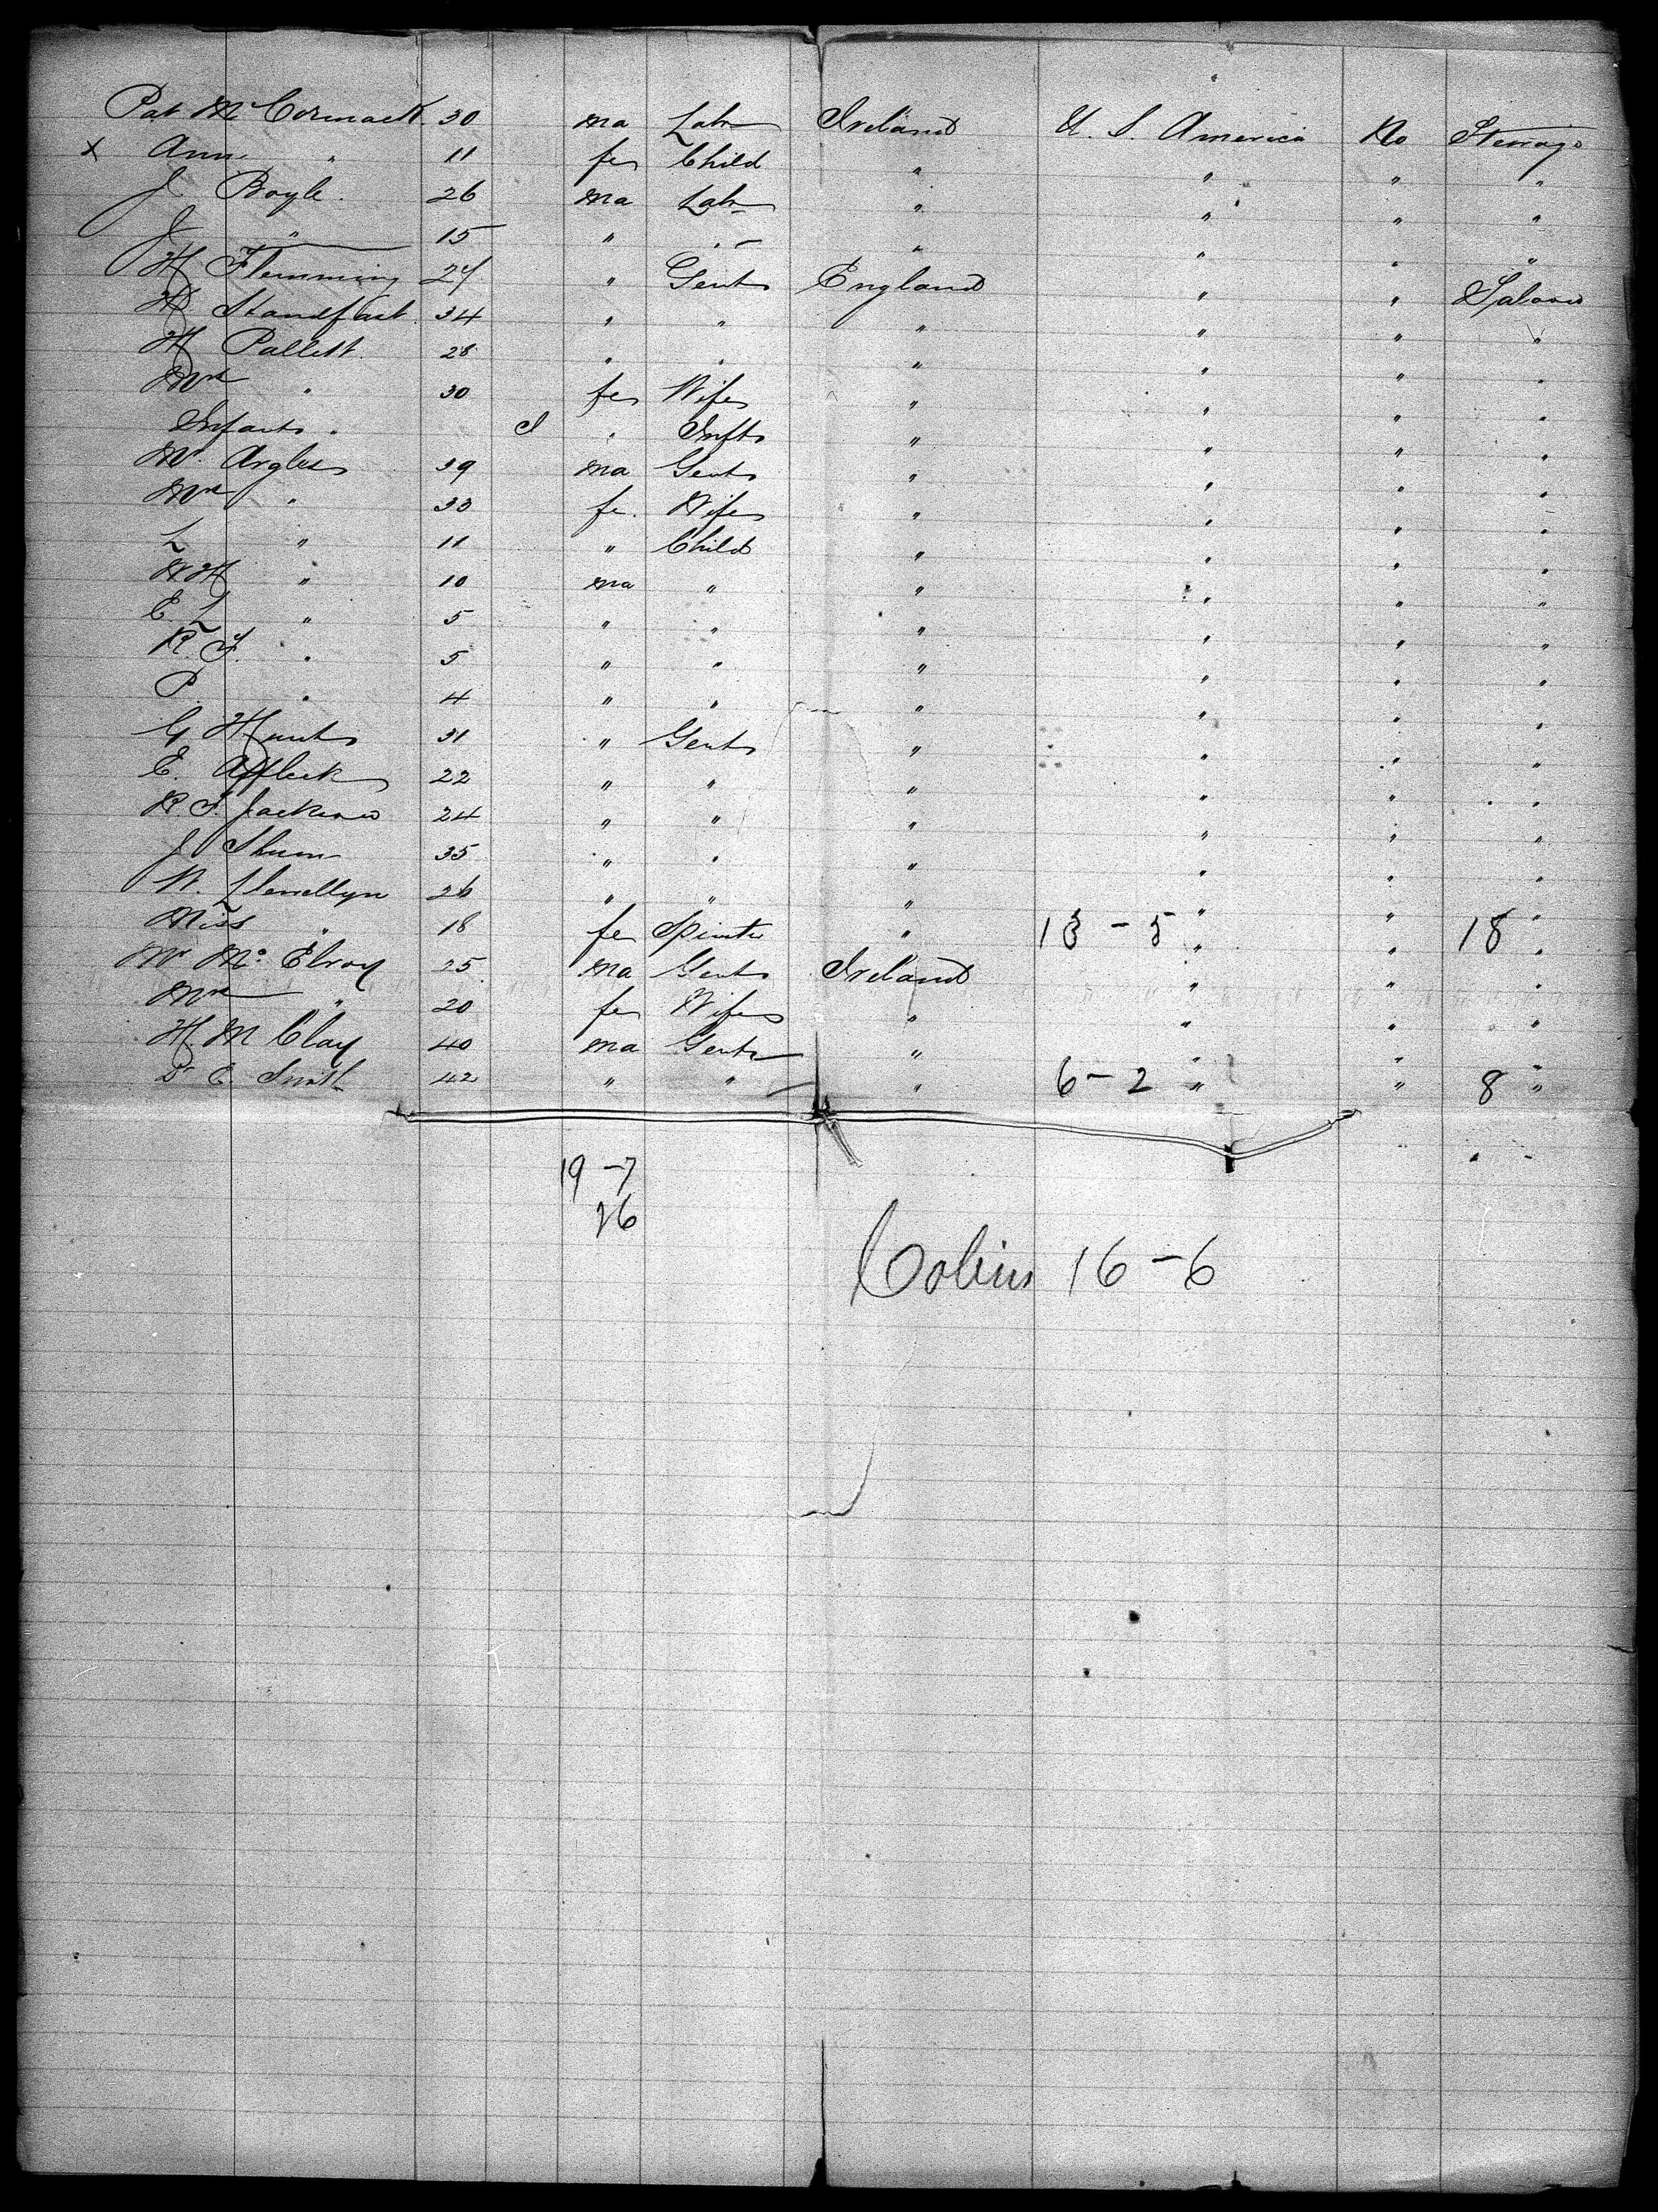 Pat McCormack. 30 ma Labr Ireland U. S. America No Steerage
x Ann " 11 fe Child " " " "
J. Boyle. 26 ma Labr " " " "
J " 15 " " " " " "
H Flemming 27 " Gent England " " Saloon
H Standfast 34 " " " " " "
H Pallett. 28 " " " " " "
Mrs " 30 fe Wife " " " "
Infant " I " Inft " " " "
Mr. Argles 39 ma Gent " " " "
Mrs " 33 fe. Wife " " " "
L " 11 " Child " " " "
W H " 10 ma " " " " "
E. L " 5 " " " " " "
R J. " 5 " " " " " "
P. " 4 " " " " " "
G Hunt 31 " Gent " " " "
E. Affleck 22 " " " " " "
R. S. Jackson 24 " " " " " "
J Shum 35 " " " " " "
W. Llewellyn 26 " " " " " "
Miss " 18 fe Spinstr " 13 - 5 " " 18 "
Mr Mc Elroy 25 ma Gent Ireland " " "
Mrs " 20 fe Wife " " " "
H. M Clay 40 ma Gent " " " "
Dr E. Smith 42 " " " 6 - 2 " " 8 "
19 - 7
26
Cabin 16 - 6